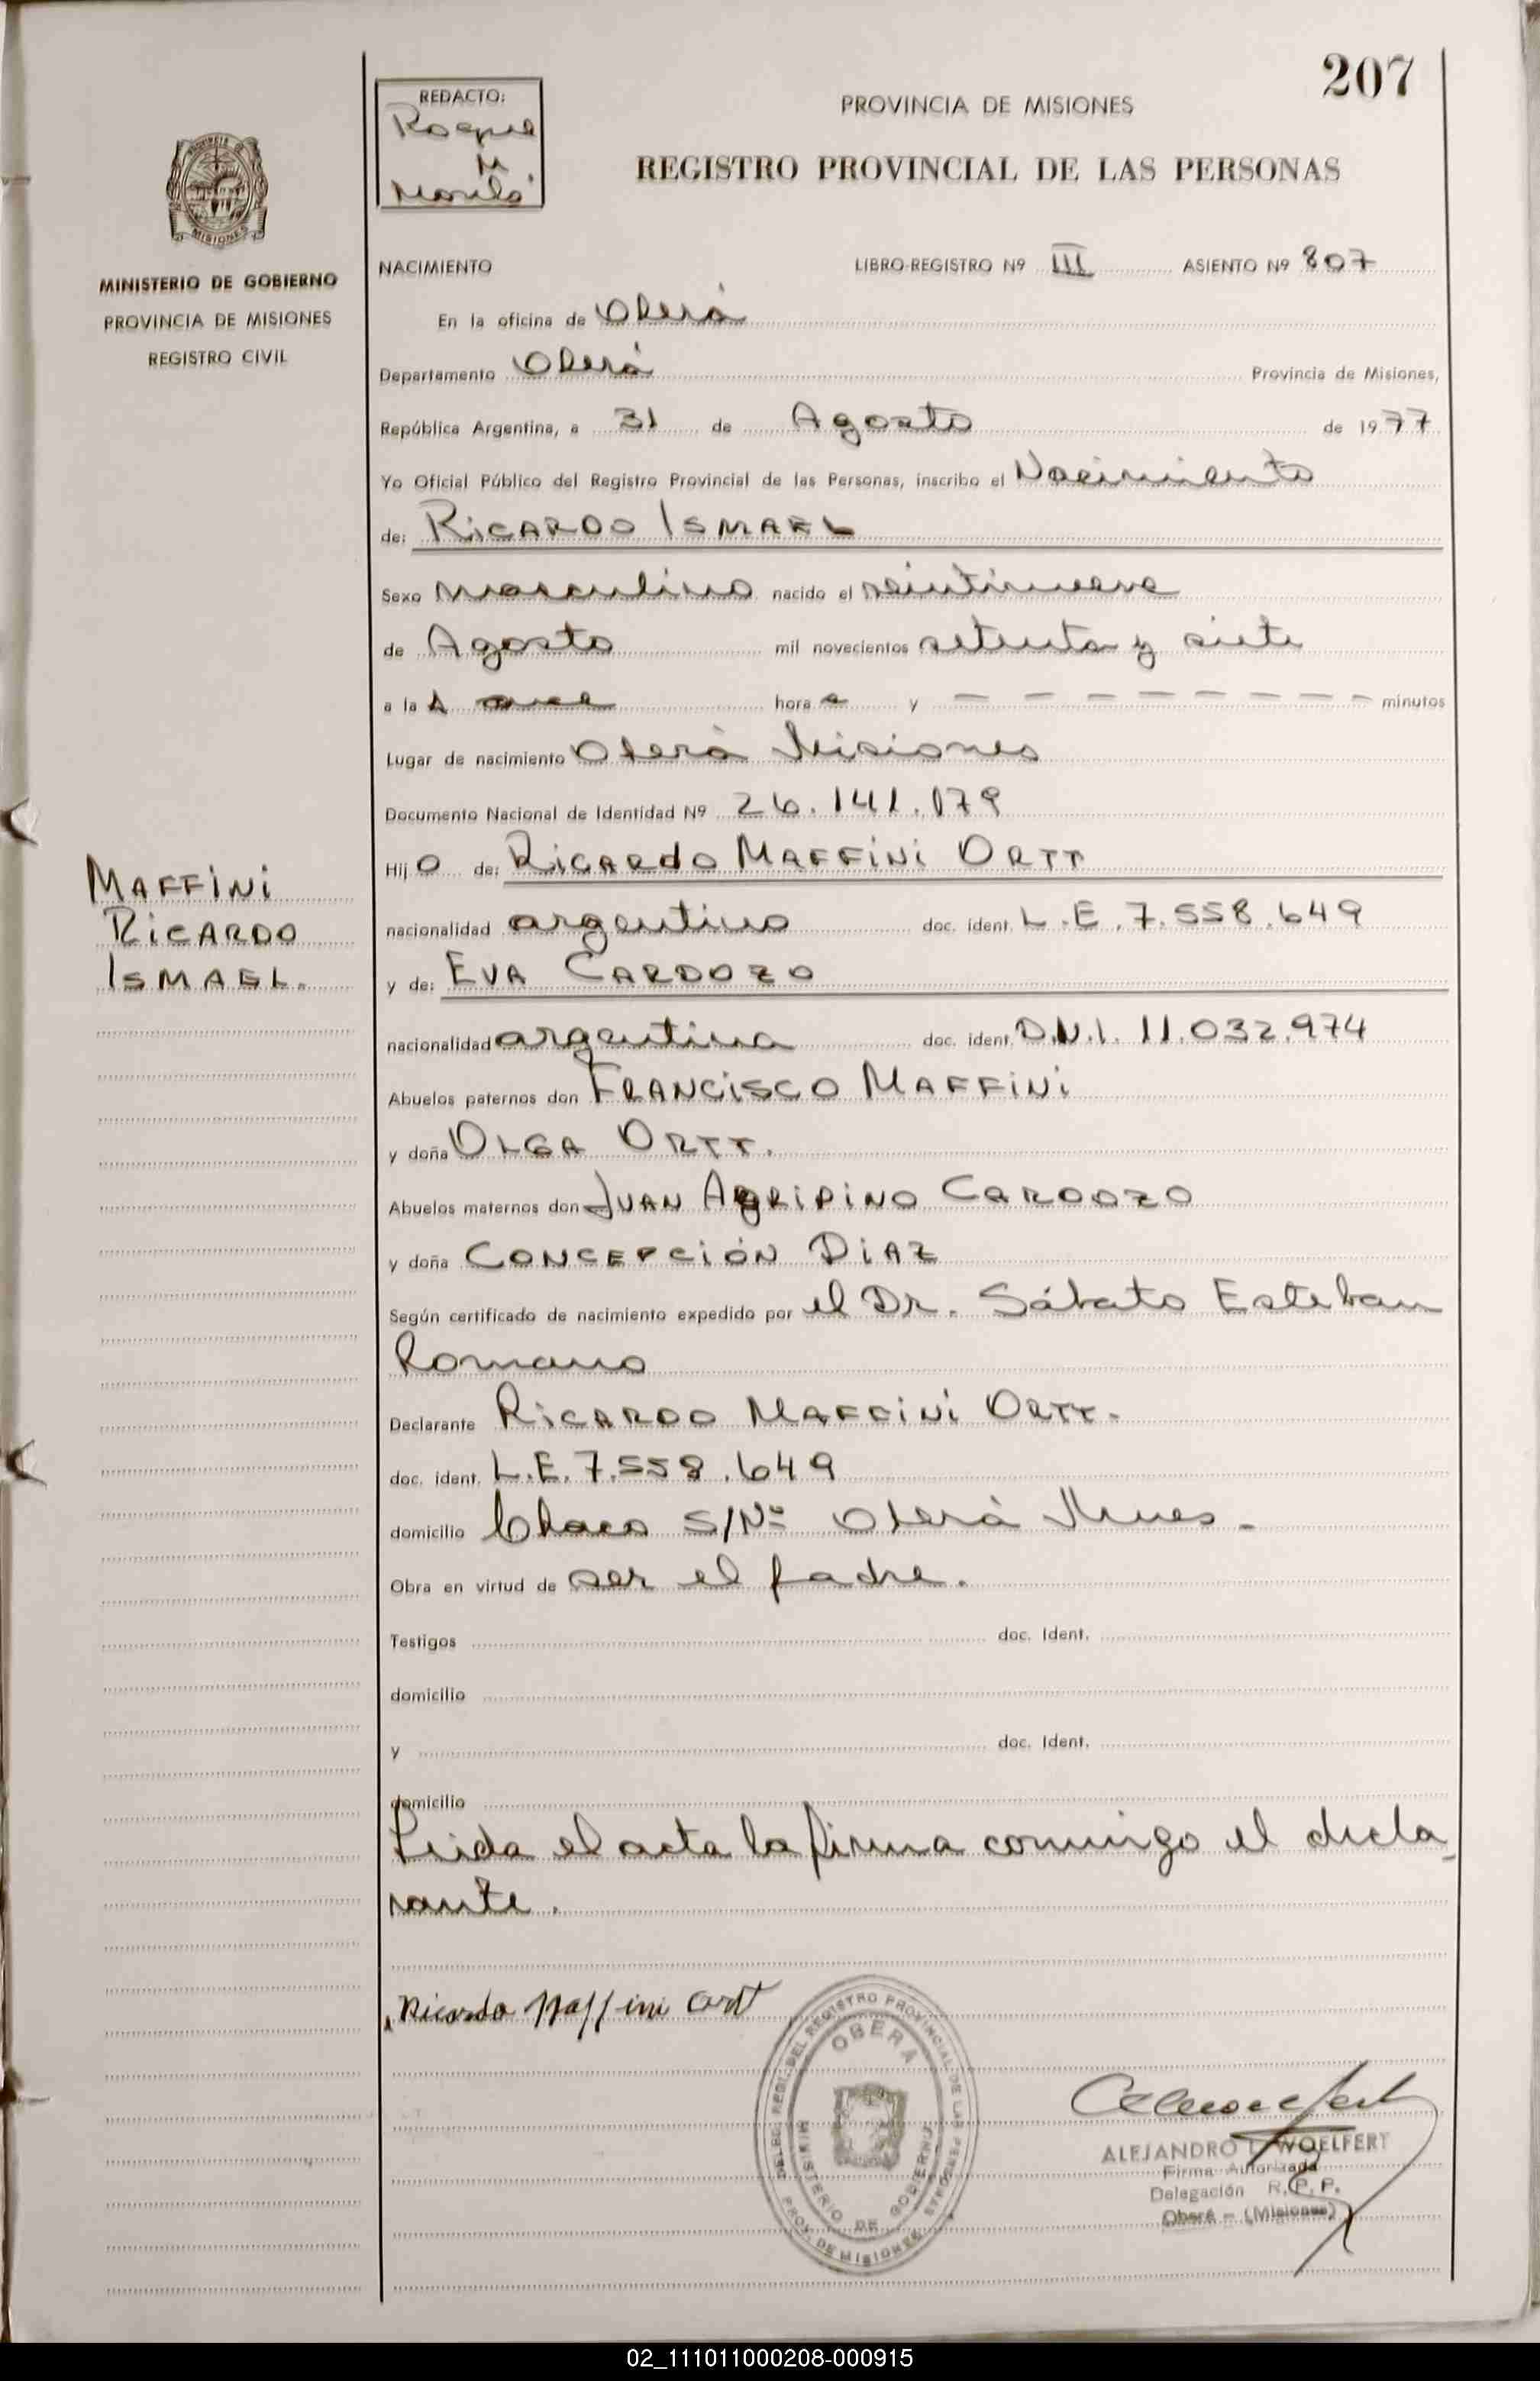 207
REDACTO:
Roque
M
PROVINCIA DE MISIONES
REGISTRO PROVINCIAL DE LAS PERSONAS
MISIONES
MINISTERIO DE GOBIERNO
PROVINCIA DE MISIONES
REGISTRO CIVIL
NACIMIENTO LIBRO-REGISTRO Nº III ASIENTO Nº 807
En la oficina de Oberá
Departamento Oberá Provincia de Misiones,
República Argentina, a 31 de Agosto de 1977
Yo Oficial Público del Registro Provincial de las Personas, inscribo el Nacimiento
de: RICARDO ISMAEL
Sexo masculino nacido el veintinueve
de Agosto mil novecientos setenta y siete
a la s once hora s y — — — — — — — — — minutos
Lugar de nacimiento Oberá Misiones
Documento Nacional de Identidad Nº 26.141.179
Hij o de: RICARDO MAFFINI ORTT
MAFFINI
RICARDO
ISMAEL.
nacionalidad argentino doc. ident. L.E. 7.558.649
y de: EVA CARDOZO
nacionalidad argentina doc. ident. D.N.I. 11.032.974
Abuelos paternos don FRANCISCO MAFFINI
y doña OLGA ORTT.
Abuelos maternos don JUAN AGRIPINO CARDOZO
y doña CONCEPCIÓN DIAZ
Según certificado de nacimiento expedido por el Dr. Sábato Esteban
Romano
Declarante RICARDO MAFFINI ORTT.
doc. ident. L.E. 7.558.649
domicilio Chaco S/Nº Oberá Mnes.
Obra en virtud de ser el padre.
Testigos doc. Ident.
domicilio
y doc. Ident.
domicilio
Leida el acta la firma conmigo el decla
rante.
Ricardo Maffini Ortt
DELEG. REGI. DEL REGISTRO PROVINCIAL DE LAS PERSONAS
OBERÁ
MINISTERIO DE GOBIERNO
PROV. DE MISIONES
ALEJANDRO L. WOELFERT
Firma Autorizada
Delegación R.P.P.
Oberá - (Misiones)
02_111011000208-000915